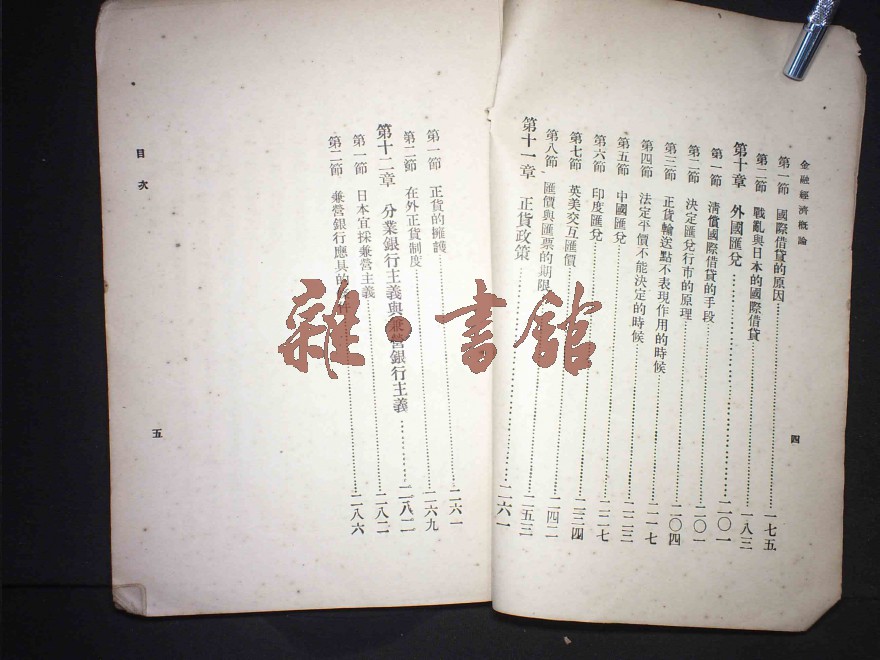 金融經濟概論
第一節　國際借貸的原因……一七五
第二節　戰亂與日本的國際借貸……一八三
第十章　外國匯兌……二〇一
第一節　淸償國際借貸的手段……二〇一
第二節　決定匯兌行市的原理……二〇四
第三節　正貨輸送點不表現作用的時候……二一七
第四節　法定平價不能決定的時候……二二三
第五節　中國匯兌……二二七
第六節　印度匯兌……二三四
第七節　英美交互匯價……二四二
第八節　匯價與匯票的期限……二五三
第十一章　正貨政策……二六一
四
第一節　正貨的擁護……二六一
第二節　在外正貨制度……二六九
第十二章　分業銀行主義與兼營銀行主義……二八二
第一節　日本宜採兼營主義……二八二
第二節　兼營銀行應具的條件……二八六
目次
五
雜·書館